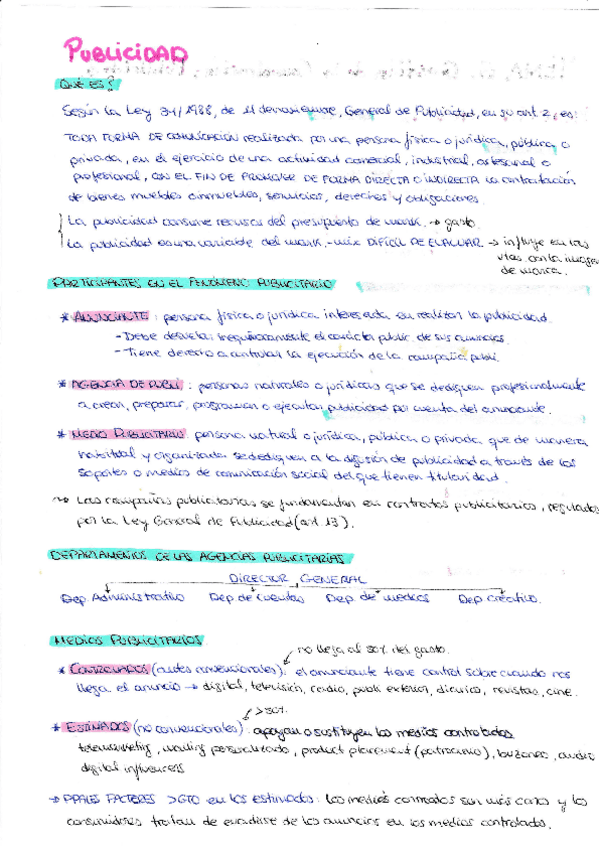 PUBLICIDAD
QUÉ ES?
Según la Ley 34/1988, de 11 de noviembre, General de Publicidad, en su art. 2, es:
TODA FORMA DE COMUNICACIÓN realizada por una persona física o jurídica, pública o
privada, en el ejercicio de una actividad comercial, industrial, artesanal o
profesional, CON EL FIN DE PROMOVER DE FORMA DIRECTA O INDIRECTA la contratación
de bienes muebles o inmuebles, servicios, derechos y obligaciones.
La publicidad consume recursos del presupuesto de mark. → gasto.
La publicidad es una variable del mark-mix DIFÍCIL DE EVALUAR → influye en las
vtas con la imagen
de marca.
PARTICIPANTES EN EL FENÓMENO PUBLICITARIO
* ANUNCIANTE: persona física o jurídica interesada en realizar la publicidad.
- Debe desvelar inequívocamente el carácter public. de sus anuncios.
- Tiene derecho a controlar la ejecución de la campaña publi.
* AGENCIA DE PUBLI: personas naturales o jurídicas que se dediquen profesionalmente
a crear, preparar, programar o ejecutar publicidad por cuenta del anunciante.
* MEDIO PUBLICITARIO: persona natural o jurídica, pública o privada que de manera
habitual y organizada se dediquen a la difusión de publicidad a través de los
soportes o medios de comunicación social del que tienen titularidad.
↝ Las campañas publicitarias se fundamentan en contratos publicitarios, regulados
por la Ley General de Publicidad (art. 13).
DEPARTAMENTOS DE LAS AGENCIAS PUBLICITARIAS
DIRECTOR GENERAL
Dep. Administrativo Dep. de cuentas Dep. de medios Dep. creativo.
MEDIOS PUBLICITARIOS
no llega al 50% del gasto.
* CONTROLADOS (antes convencionales): el anunciante tiene control sobre cuando nos
llega el anuncio → digital, televisión, radio, publi exterior, diarios, revistas, cine.
> 50%.
* ESTIMADOS (no convencionales): apoyan o sustituyen los medios controlados
telemarketing, mailing personalizado, product placement (patrocinio), buzoneo, audio
digital, influencers
→ PPALES FACTORES > GTO en los estimados: los medios controlados son más caros y los
consumidores tratan de evadirse de los anuncios en los medios controlados.